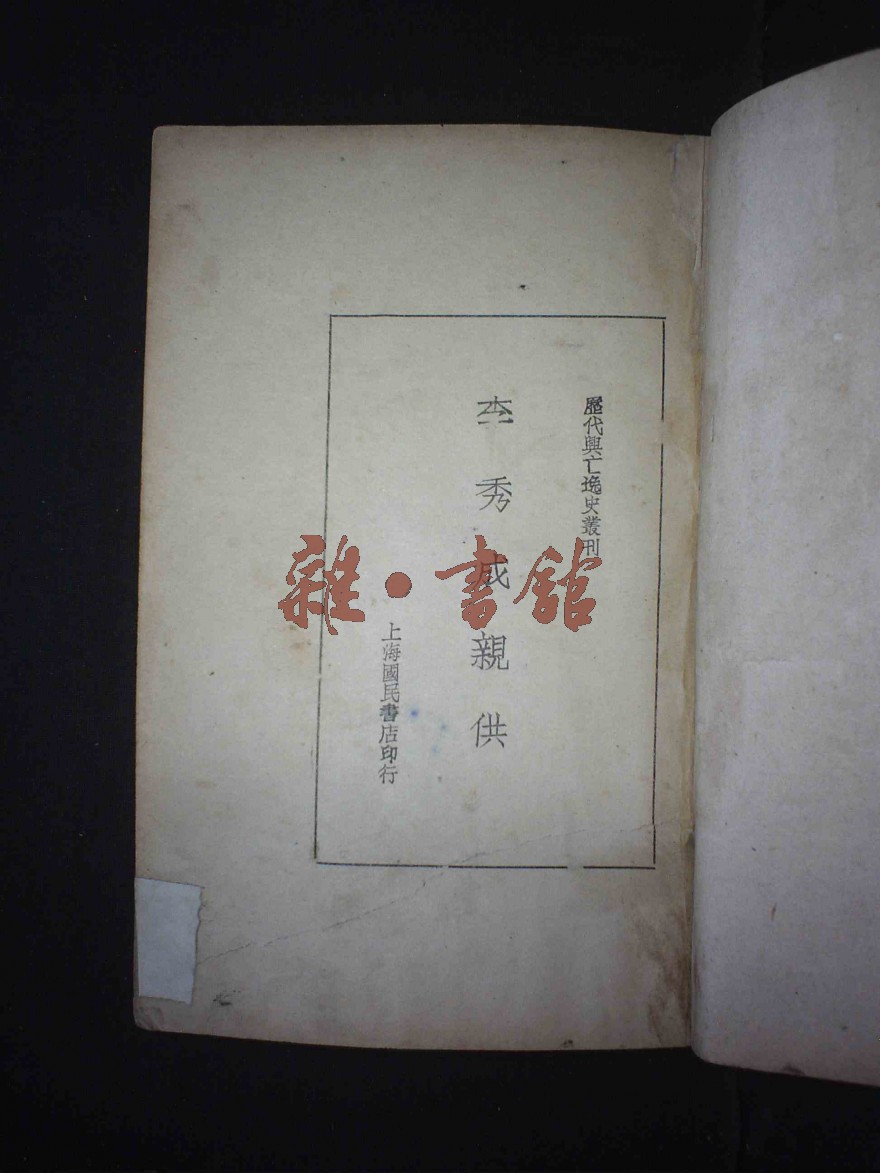 歷代興亡逸史叢刊
李秀成親供
上海國民書店印行
雜·書館